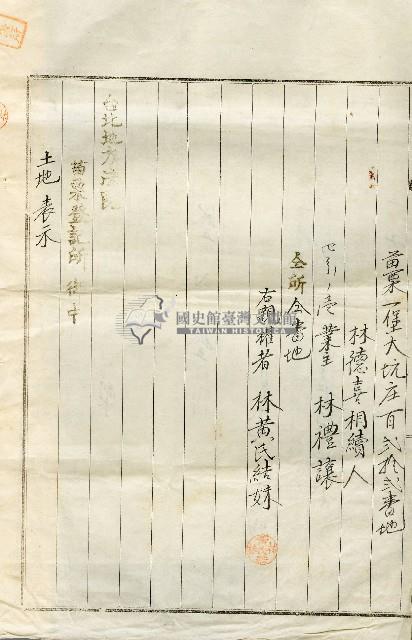 苗栗一堡大坑庄百弐拾弐番地
林德喜相續人
業主 林禮讓
仝所仝番地
右親權者 林黃氏結妹
台北地方法院
苗栗登記所 御中
土地表示
國史館臺灣文獻館
TAIWAN HISTORICA